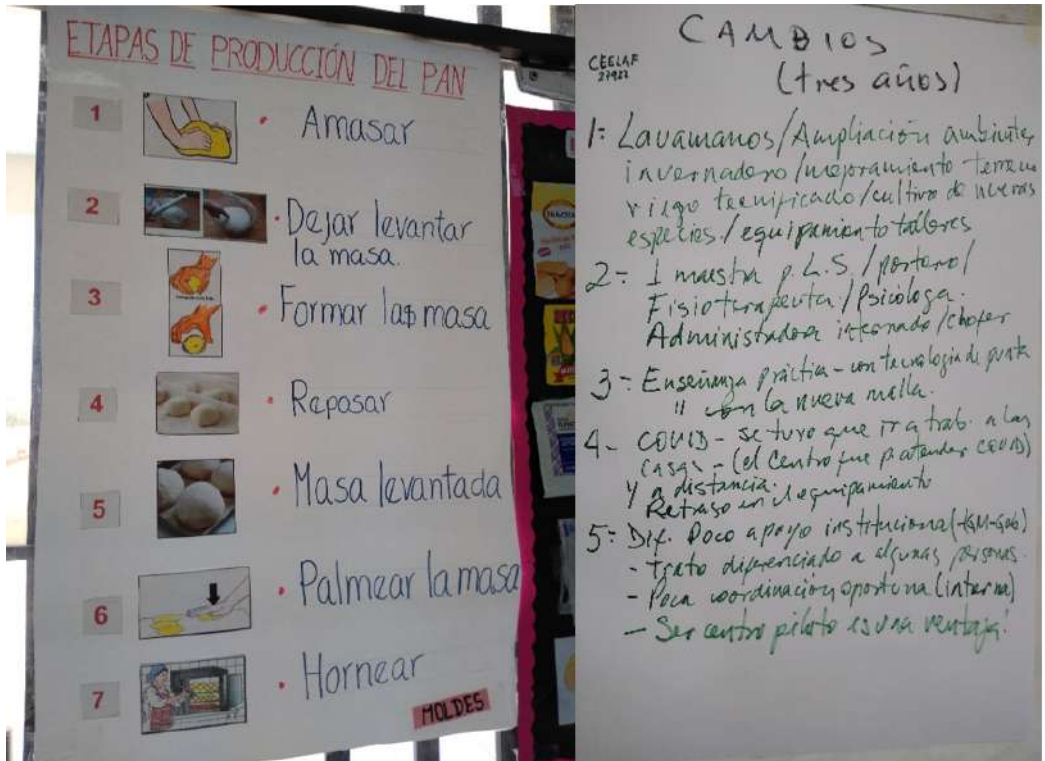 ETAPAS DE PRODUCCIÓN DEL PAN
1
Amasar
2
Dejar levantar
la masa.
3
Formar la masa
4
Reposar
5
Masa levantada
6
Palmear la masa
7
Hornear
MOLDES
CAMBIOS
(tres años)
CEELAF
27922
1= Lavamanos/Ampliación ambientes
invernadero/mejoramiento terreno
riego tecnificado/cultivo de nuevas
especies/equipamiento talleres
2= 1 maestra p. L.S. /portero/
Fisioterapeuta/Psicóloga.
Administradora internado/chofer
3= Enseñanza práctica - con tecnología de punta
" con la nueva malla.
4- COVID - se tuvo que ir a trab. a las
casas - (el centro fue p atender COVID)
y a distancia.
Retraso en el equipamiento
5= Dif. Poco apoyo institucional
- Trato diferenciado a algunas personas.
- Poca coordinación oportuna (interna)
- Ser centro piloto es una ventaja!